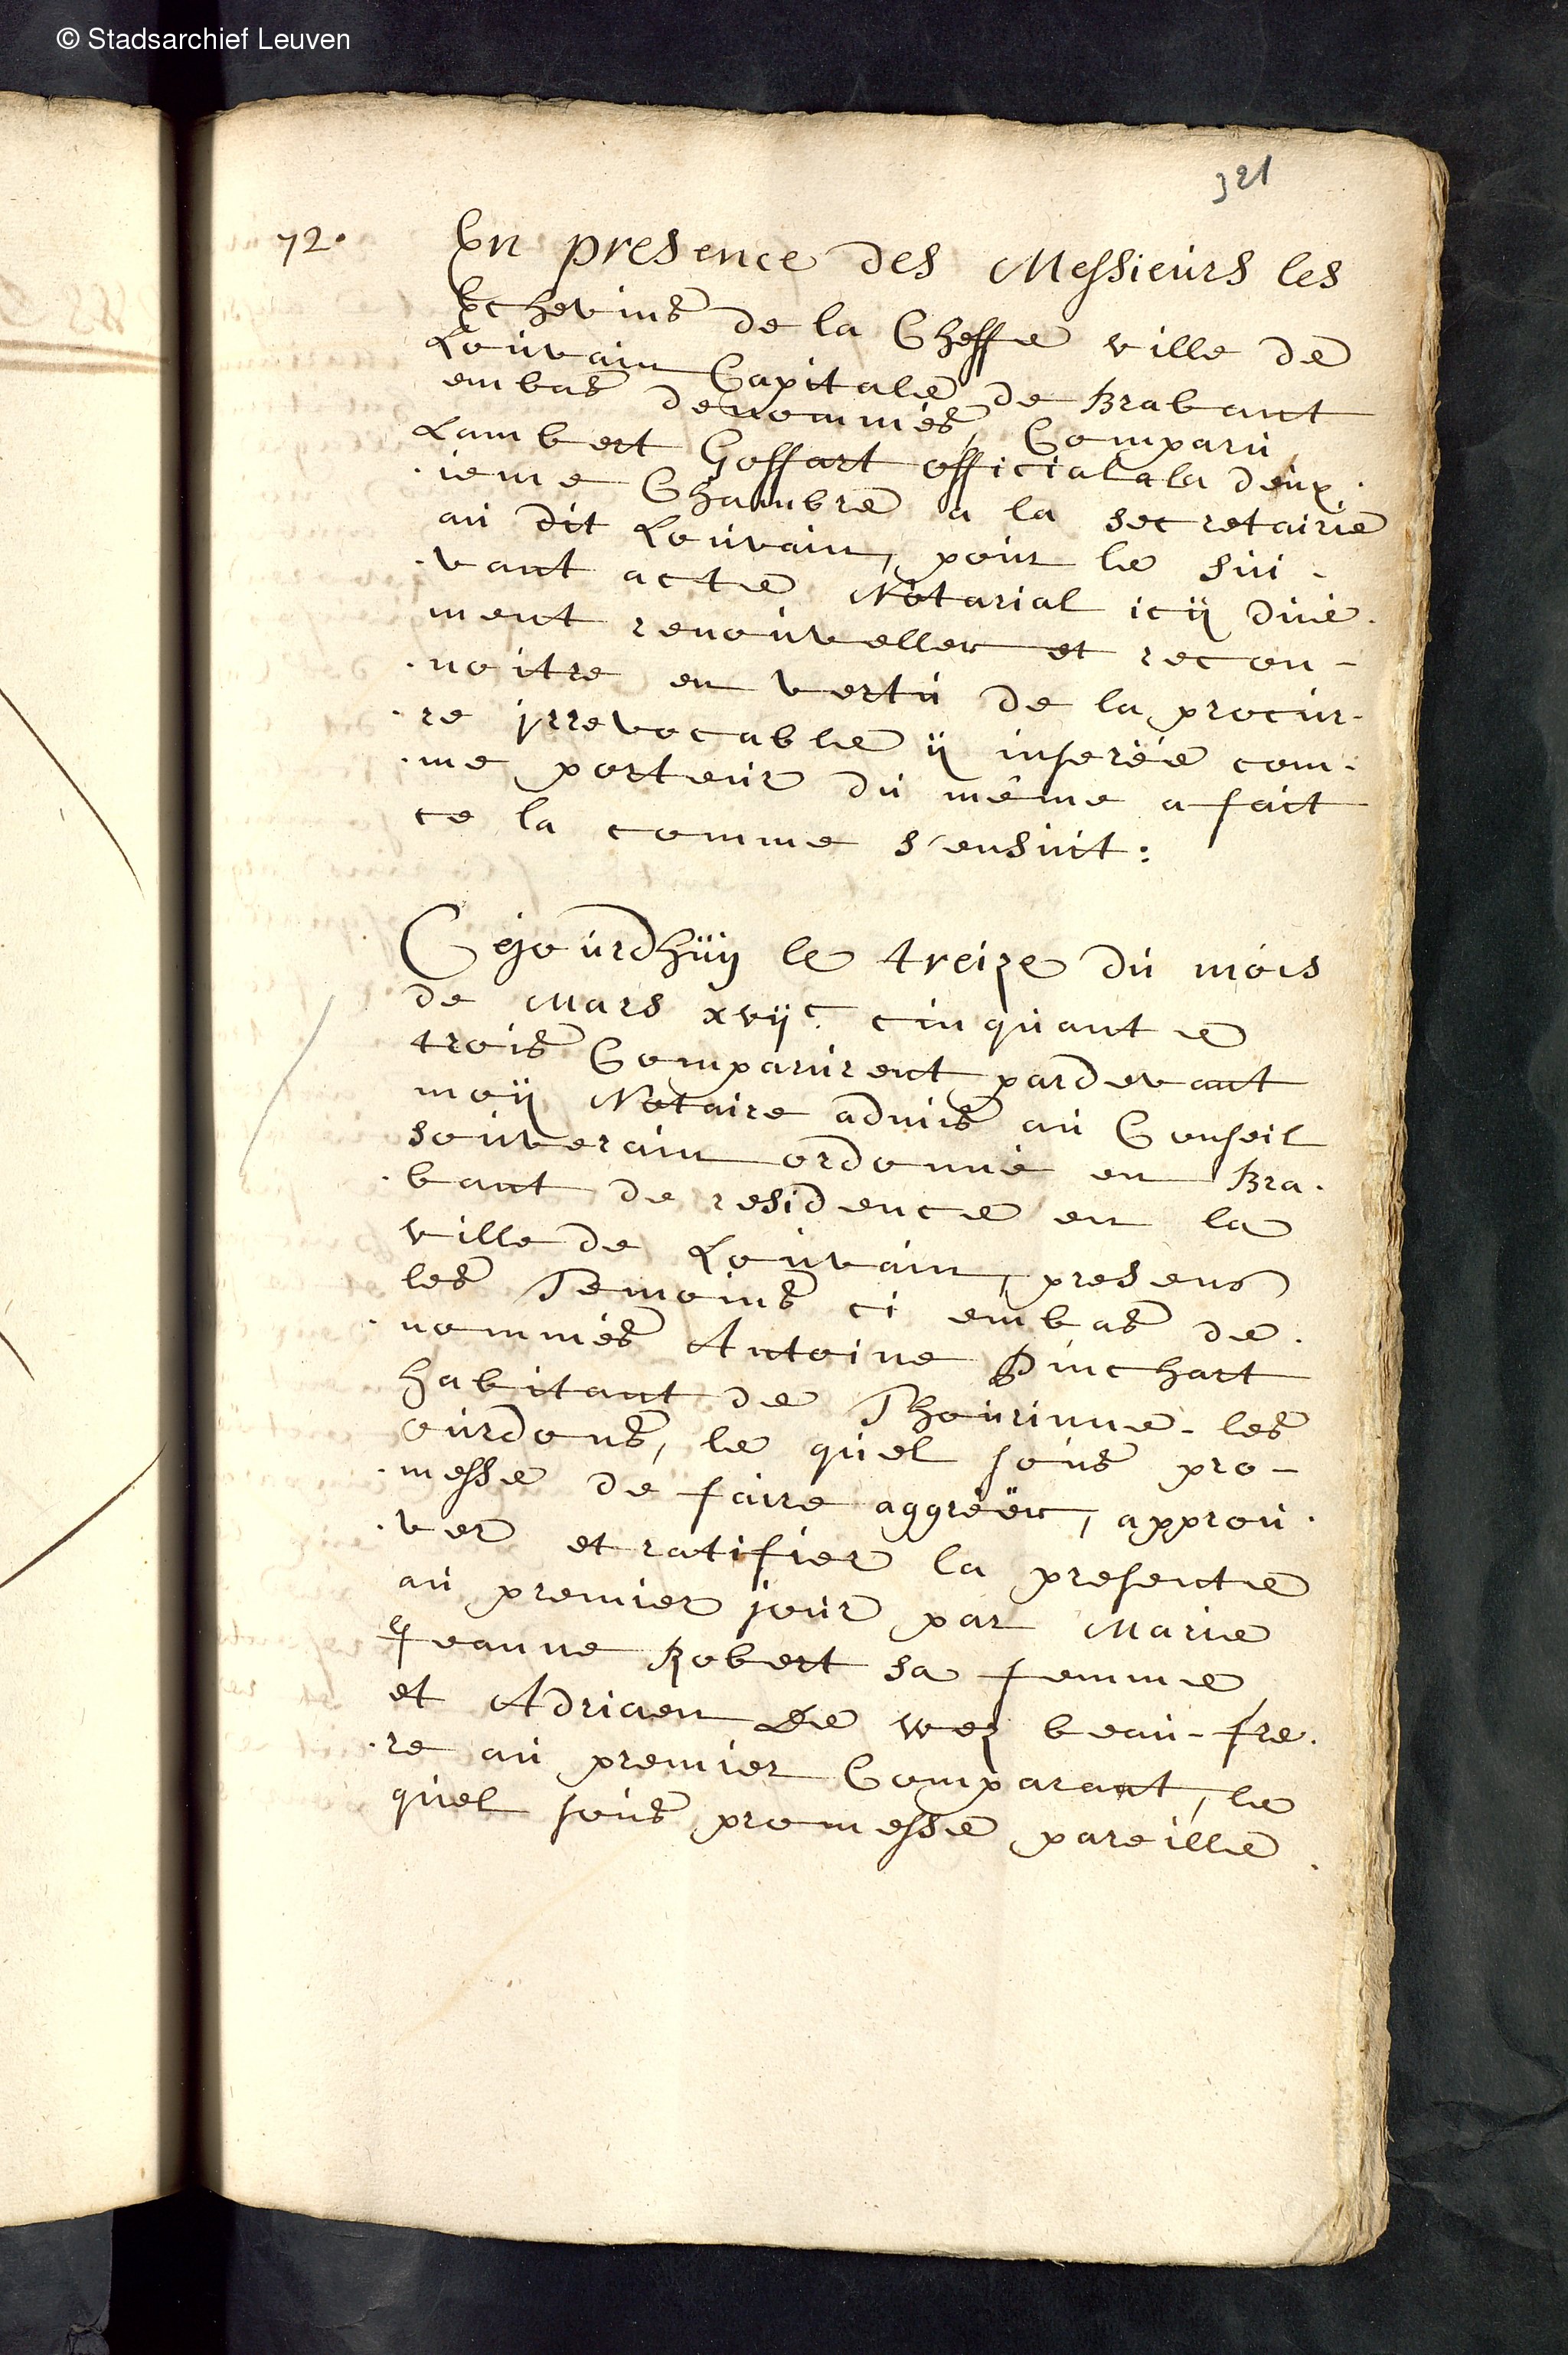 © Stadsarchief Leuven
321
72. En presence des Messieurs les
Echevins de la Cheffe ville de
Louvain Capitale de Brabant
embas denommés, Comparu
Lambert Goffart official a la deux.
.ieme Chambre a la secretairie
au dit Louvain, pour le sui-
.vant acte Notarial icÿ düe.
ment renouveller et recon-
.noitre en vertu de la procur-
.re jrrevocable ÿ inserëé com.
.me porteur du même a fait
ce la comme s'ensuit:
Cejourdhüÿ le treize du mois
de Mars xvijc. cinquante
trois Comparurent pardevant
moÿ Notaire admis au Conseil
souverain ordonné en Bra.
.bant de residence en la
ville de Louvain, presens
les Temoins ci embas de.
.nommés Antoine Pinchart
habitant de Thourinne-les
ourdons, le quel sous pro-
.messe de faire aggréër, approu.
.ver et ratifier la presente
au premier jour par Marie
Jeanne Robert sa femme,
et Adriaen De wez beau-fre.
.re au premier Comparant, le
quel sous promesse pareille.